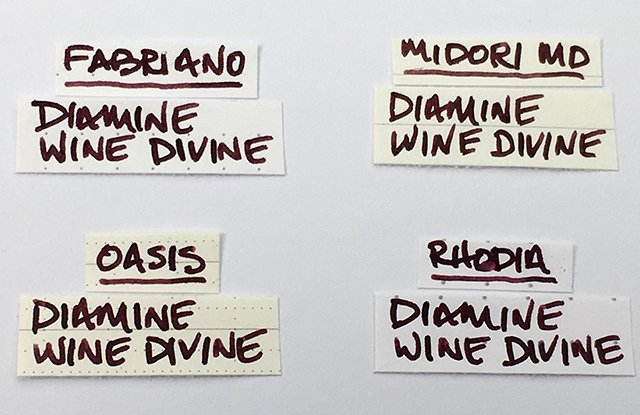 FABRIANO
DIAMINE
WINE DIVINE
MIDORI MD
DIAMINE
WINE DIVINE
OASIS
DIAMINE
WINE DIVINE
RHODIA
DIAMINE
WINE DIVINE